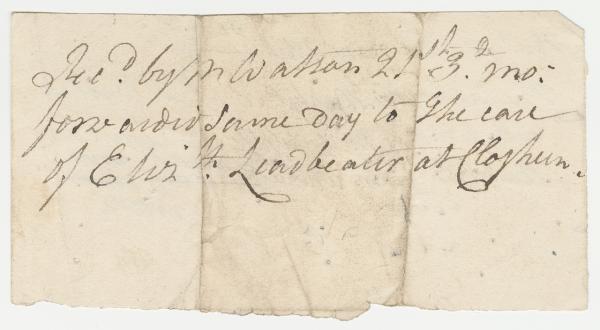 Rec.d by M Watson 21st 3.d mo:
forwarded same day to the care
of Eliz.th Leadbeater at Clogheen.